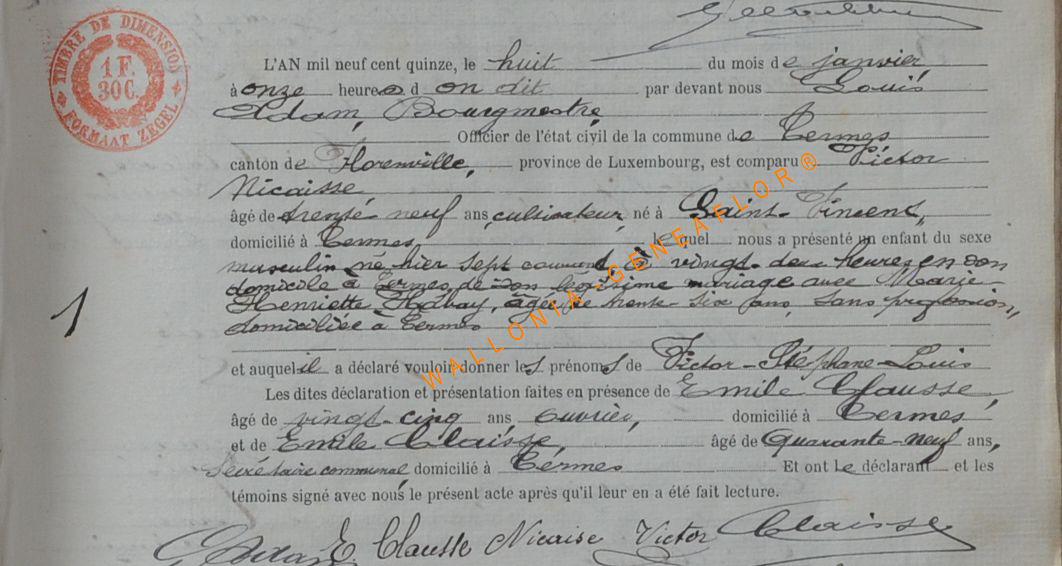 TIMBRE DE DIMENSION
1 F.
30C.
FORMAAT ZEGEL
L'AN mil neuf cent quinze, le huit du mois de janvier
à onze heures d on dit par devant nous Louis
Adam, Bourgmestre
Officier de l'état civil de la commune de Termes
canton de Florenville, province de Luxembourg, est comparu Victor
Nicaisse
âgé de trente neuf ans, cultivateur, né à Saint-Vincent,
domicilié à Termes, lequel nous a présenté un enfant du sexe
musculin né hier sept courant, à vingt-deux heures en son
domicile à Termes, de son légitime mariage avec Marie
Henriette Habay, âgée de trente-six ans, sans profession,
domiciliée à Termes
1
et auquel il a déclaré vouloir donner les prénoms de Victor-Stéphane-Louis
Les dites déclaration et présentation faites en présence de Emile Clausse,
âgé de vingt-cinq ans ouvrier, domicilié à Termes
et de Emile Claisse, âgé de Quarante-neuf ans,
Secrétaire communal domicilié à Termes Et ont le déclarant et les
témoins signé avec nous le présent acte après qu'il leur en a été fait lecture.
E. Clausse Nicaise Victor Claisse
WALLONIA-GENEAFLOR®